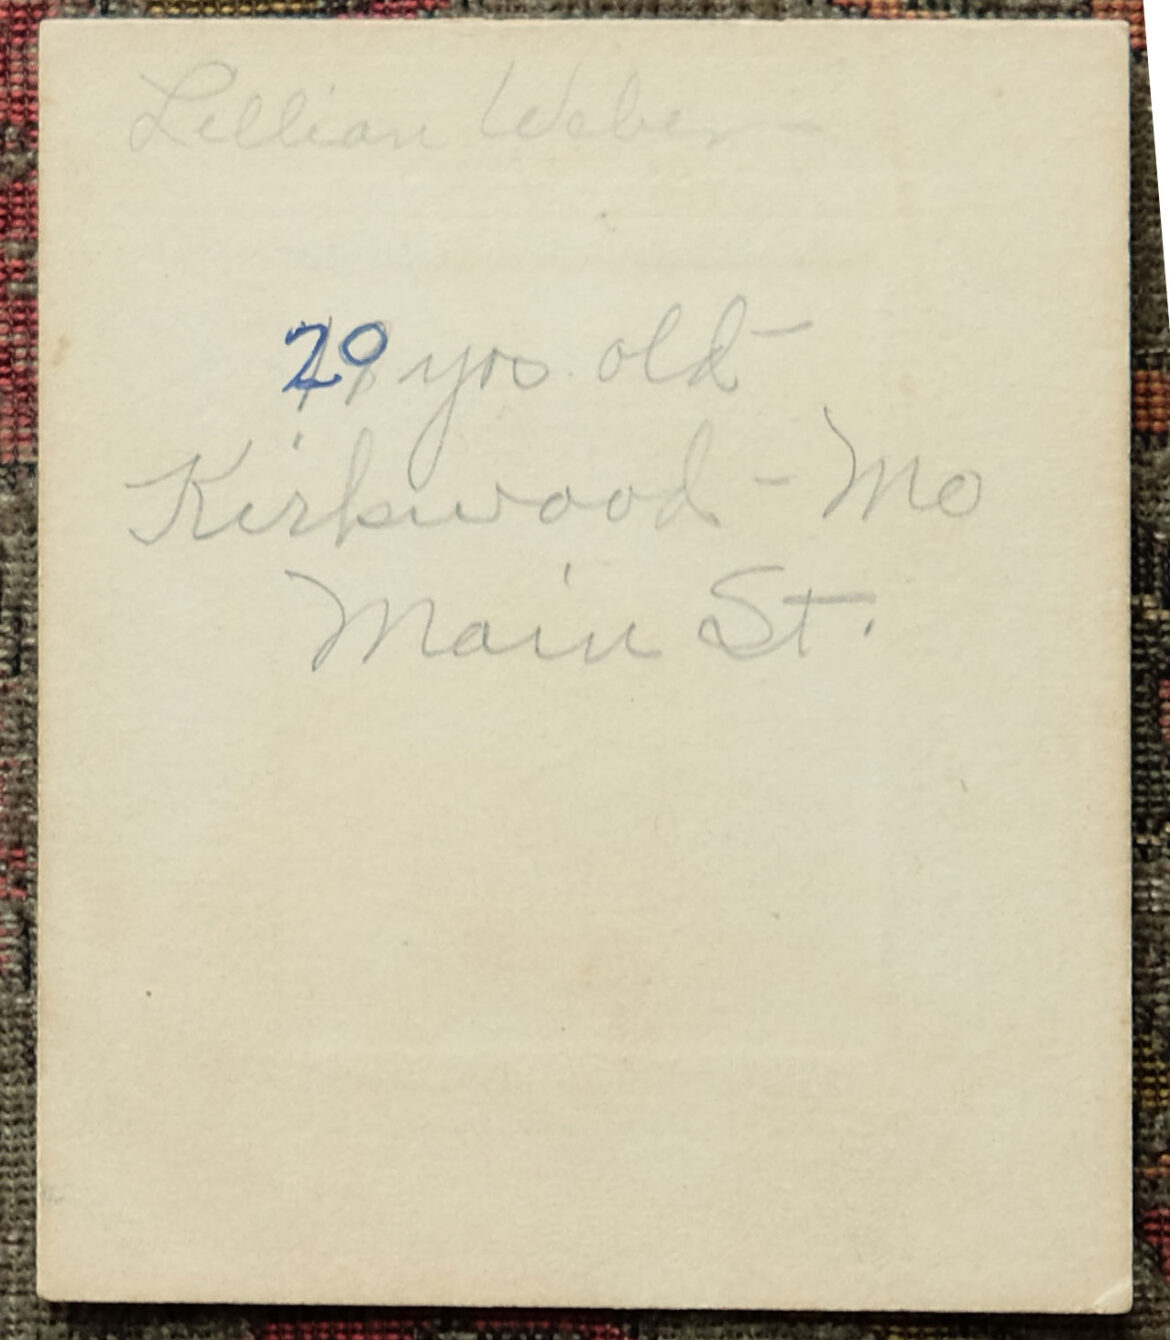 Lillian Weber -
20 yrs. old -
Kirkwood - Mo
Main St.